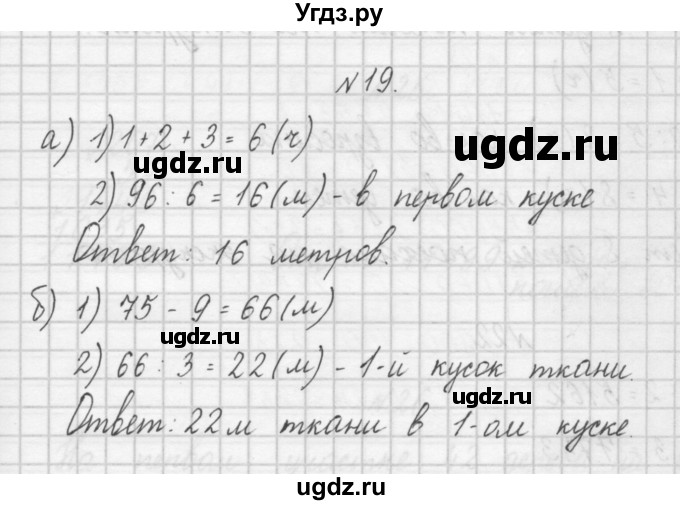 Угдз.ру
№19.
а) 1) 1+2+3=6(ч)
2) 96:6=16(м) - в первом куске
Ответ: 16 метров.
б) 1) 75-9=66(м)
2) 66:3=22(м) - 1-й кусок ткани.
Ответ: 22м ткани в 1-ом куске.
ugdz.ru
ugdz.ru
ugdz.ru
ugdz.ru
ugdz.ru
ugdz.ru